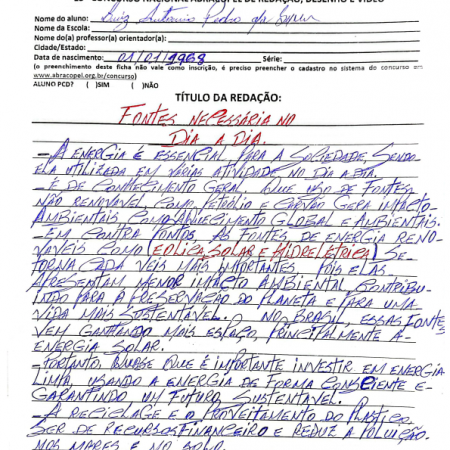 CONCURSO NACIONAL ABRACOPEL DE REDAÇÃO, DESENHO E VÍDEO
Nome do aluno: Luiz Antonio Pedro da
Nome da Escola:
Nome do(a) professor(a) orientador(a):
Cidade/Estado:
Data de nascimento: 01/01/1968 Série:
(o preenchimento deste ficha não vale como inscrição, é preciso preencher o cadastro no sistema do concurso em
www.abracopel.org.br/concurso)
ALUNO PCD? ( )SIM ( )NÃO
TÍTULO DA REDAÇÃO:
FONTES NECESSÁRIA NO
DIA A DIA.
- A ENERGIA É ESSENCIAL PARA A SOCIEDADE, SENDO
ELA UTILIZADA EM VÁRIAS ATIVIDADE NO DIA A DIA.
- É DE CONHECIMENTO GERAL, QUE USO DE FONTES,
NÃO RENOVÁVEL, COMO PETRÓLIO E CARVÃO GERA IMPACTO
AMBIENTAIS COMO AQUECIMENTO GLOBAL E AMBIENTAIS.
- EM CONTRA PONTOS AS FONTES DE ENERGIA RENO
VAVEIS COMO (EOLICA, SOLAR E HIDRELÉTRICA) SE-
TORNA CADA VEIS MAIS IMPORTANTES POIS ELAS
APRESENTAM MENOR IMPACTO AMBIENTAL CONTRIBU-
INDO PARA A PRESERVAÇÃO DO PLANETA E PARA UMA
VIDA MAIS SUSTENTÁVEL. NO BRASIL, ESSAS FONTES
VEM GANHANDO MAIS ESPAÇO, PRINCIPALMENTE A-
ENERGIA SOLAR.
- PORTANTO, QUE É IMPORTANTE INVESTIR EM ENERGIA
LIMPA, USANDO A ENERGIA DE FORMA CONSCIENTE E-
GARANTINDO UM FUTURO SUSTENTÁVEL.
- A RECICLAGE E O PROVEITAMENTO DO PLÁSTICO
SER DE RECURSOS FINANCEIRO E REDUZ A POLUIÇÃO
NOS MARES E NO SOLO.